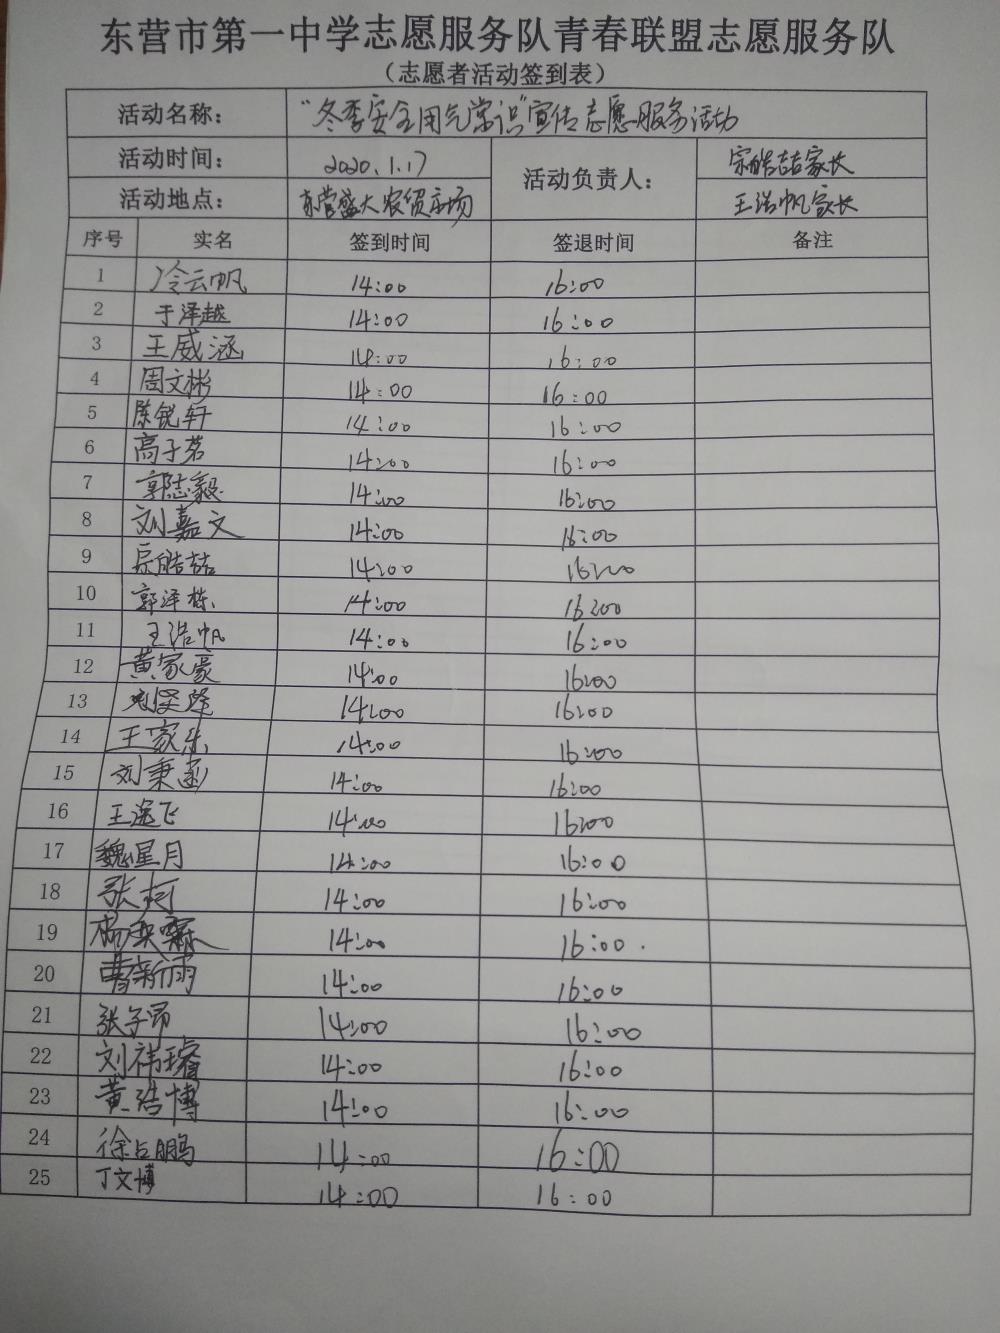 东营市第一中学志愿服务队青春联盟志愿服务队
（志愿者活动签到表）
活动名称： "冬季安全用气常识"宣传志愿服务活动
活动时间： 2020.1.17 活动负责人： 宗皓喆家长
活动地点： 东营盛大农贸市场 王浩帆家长
序号 实名 签到时间 签退时间 备注
1 冷云帆 14:00 16:00
2 于泽越 14:00 16:00
3 王威涵 14:00 16:00
4 周文彬 14:00 16:00
5 陈锐轩 14:00 16:00
6 高子茗 14:00 16:00
7 郭志毅 14:00 16:00
8 刘嘉文 14:00 16:00
9 宗皓喆 14:00 16:00
10 郭泽栋 14:00 16:00
11 王浩帆 14:00 16:00
12 黄家豪 14:00 16:00
13 14:00 16:00
14 王家乐 14:00 16:00
15 刘秉 14:00 16:00
16 王逸飞 14:00 16:00
17 魏星月 14:00 16:00
18 张柯 14:00 16:00
19 杨奕霖 14:00 16:00
20 曹新雨 14:00 16:00
21 张子昂 14:00 16:00
22 刘祎璿 14:00 16:00
23 黄浩博 14:00 16:00
24 徐占鹏 14:00 16:00
25 丁文博 14:00 16:00